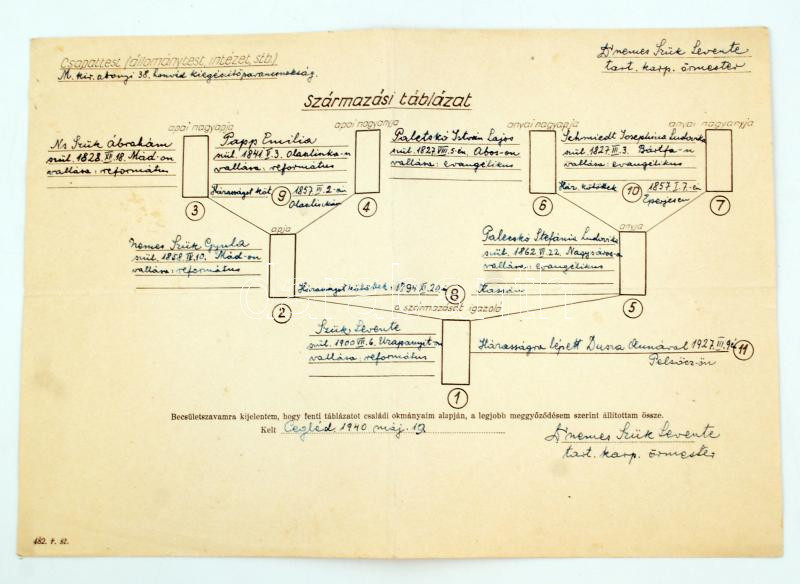 Csapattest (állománytest, intézet, stb.)
M. kir. abonyi 38. honvéd kiegészítőparancsnokság.
Dr nemes Szük Levente
tart. karp. őrmester
Származási táblázat
apai nagyapja
apai nagyanyja
anyai nagyapja
anyai nagyanyja
Ns Szük Ábrahám
szül. 1828. VII. 18. Mád-on
vallása: református
3
Papp Emilia
szül. 1841 V. 3. Olaszliszka-n
vallása: református
Házasságot köt. 9 1857 III. 2-án
Olaszliszkán
4
Paletskó István Lajos
szül. 1827 VIII. 5-én. Abos-on
vallása: evangélikus
6
Schmiedt Josephina Ludovika
szül. 1827 III. 3. Bártfa-n
vallása: evangélikus
Ház. kötöttek 10 1857 I. 7.-én
Eperjesen
7
apja
nemes Szük Gyula
szül. 1858 IV. 10. Mád-on
vallása: református
2
Házasságot kötöttek: 1894 XI. 20-án
8
Kassán
anyja
Paletskó Stefánia Ludovika
szül. 1862 VI. 22. Nagysáros-on
vallása: evangélikus
5
a származását igazoló
Szük Levente
szül. 1900 VII. 6. Uzapanyit-on
vallása: református
1
Házasságra lépett Dusza Annával 1927. III.
11
Pelsőcz-ön
Becsületszavamra kijelentem, hogy fenti táblázatot családi okmányaim alapján, a legjobb meggyőződésem szerint állítottam össze.
Kelt Cegléd 1940 máj. 19
Dr nemes Szük Levente
tart. karp. őrmester
482. r. sz.